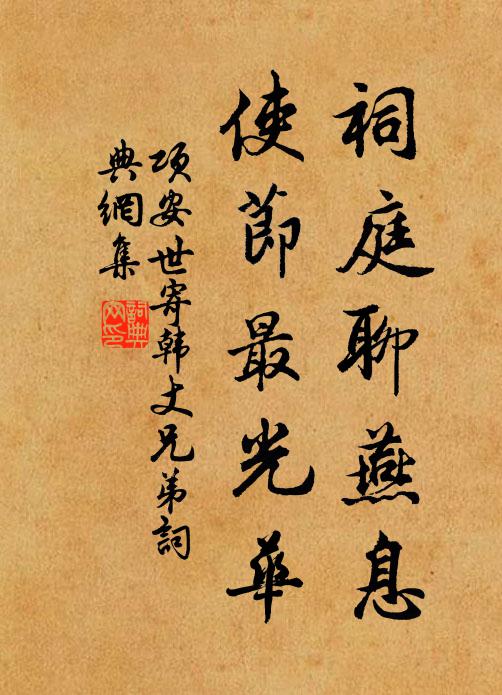 祠庭聊燕息
使節最光華
项安世寄韩丈兄弟詞
典網集
詞典
网印